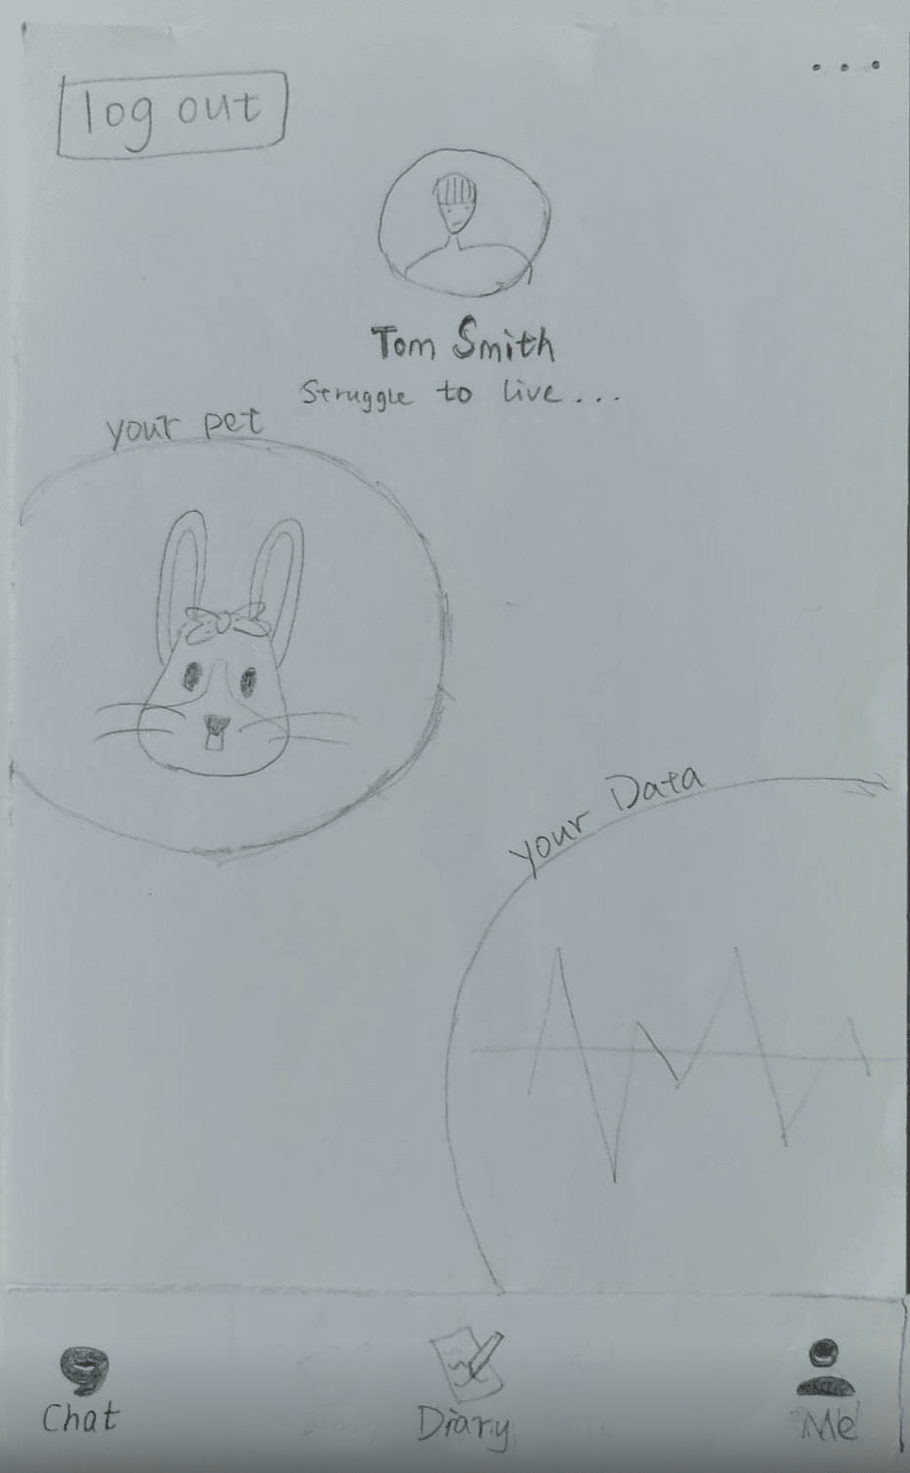 log out
Tom Smith
Struggle to live...
your pet
your Data
Chat
Diary
Me